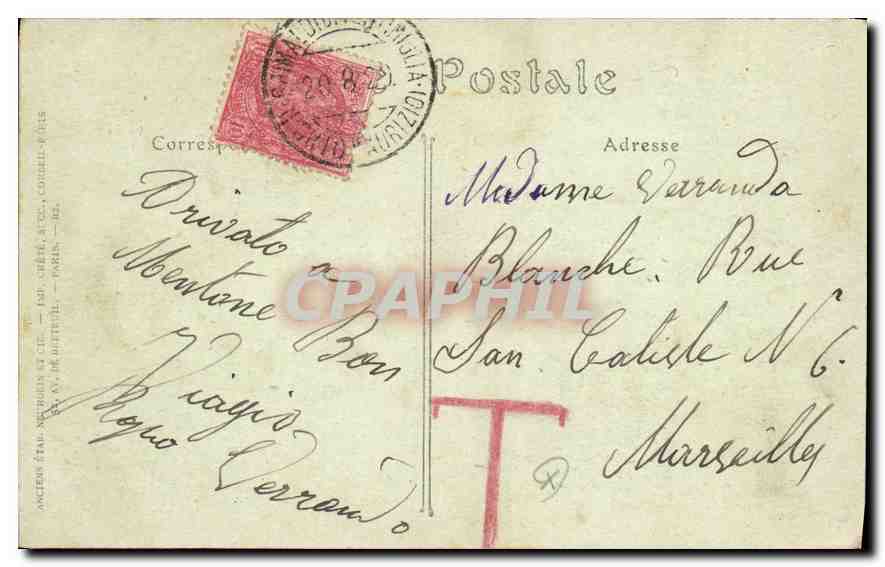 Postale
Correspo
Adresse
Arivato
a
Mentone Bon
Viagio
Verrando
Madame Verranda
Blanche. Rue
San Caliste N 6.
Marseille
T
ANCIENS ÉTAB. NEURDEIN ET CIE. — IMP. CRÉTÉ, SUCC., CORBEIL-PARIS
52, AV. DE BRETEUIL. — PARIS. — R2.
CPAPHIL